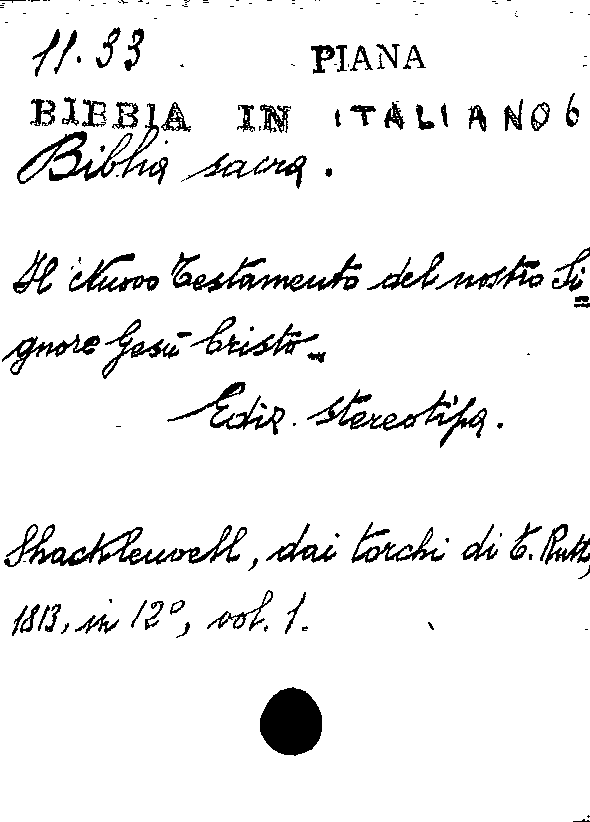 11.33 PIANA
BIBBIA IN ITALIANO 6
Biblia sacra.
Il Nuovo Testamento del nostro Si=
gnore Gesù Cristo.
Ediz. stereotipa.
Shacklewell, dai torchi di T. Rutt,
1813, in 12°, vol. 1.